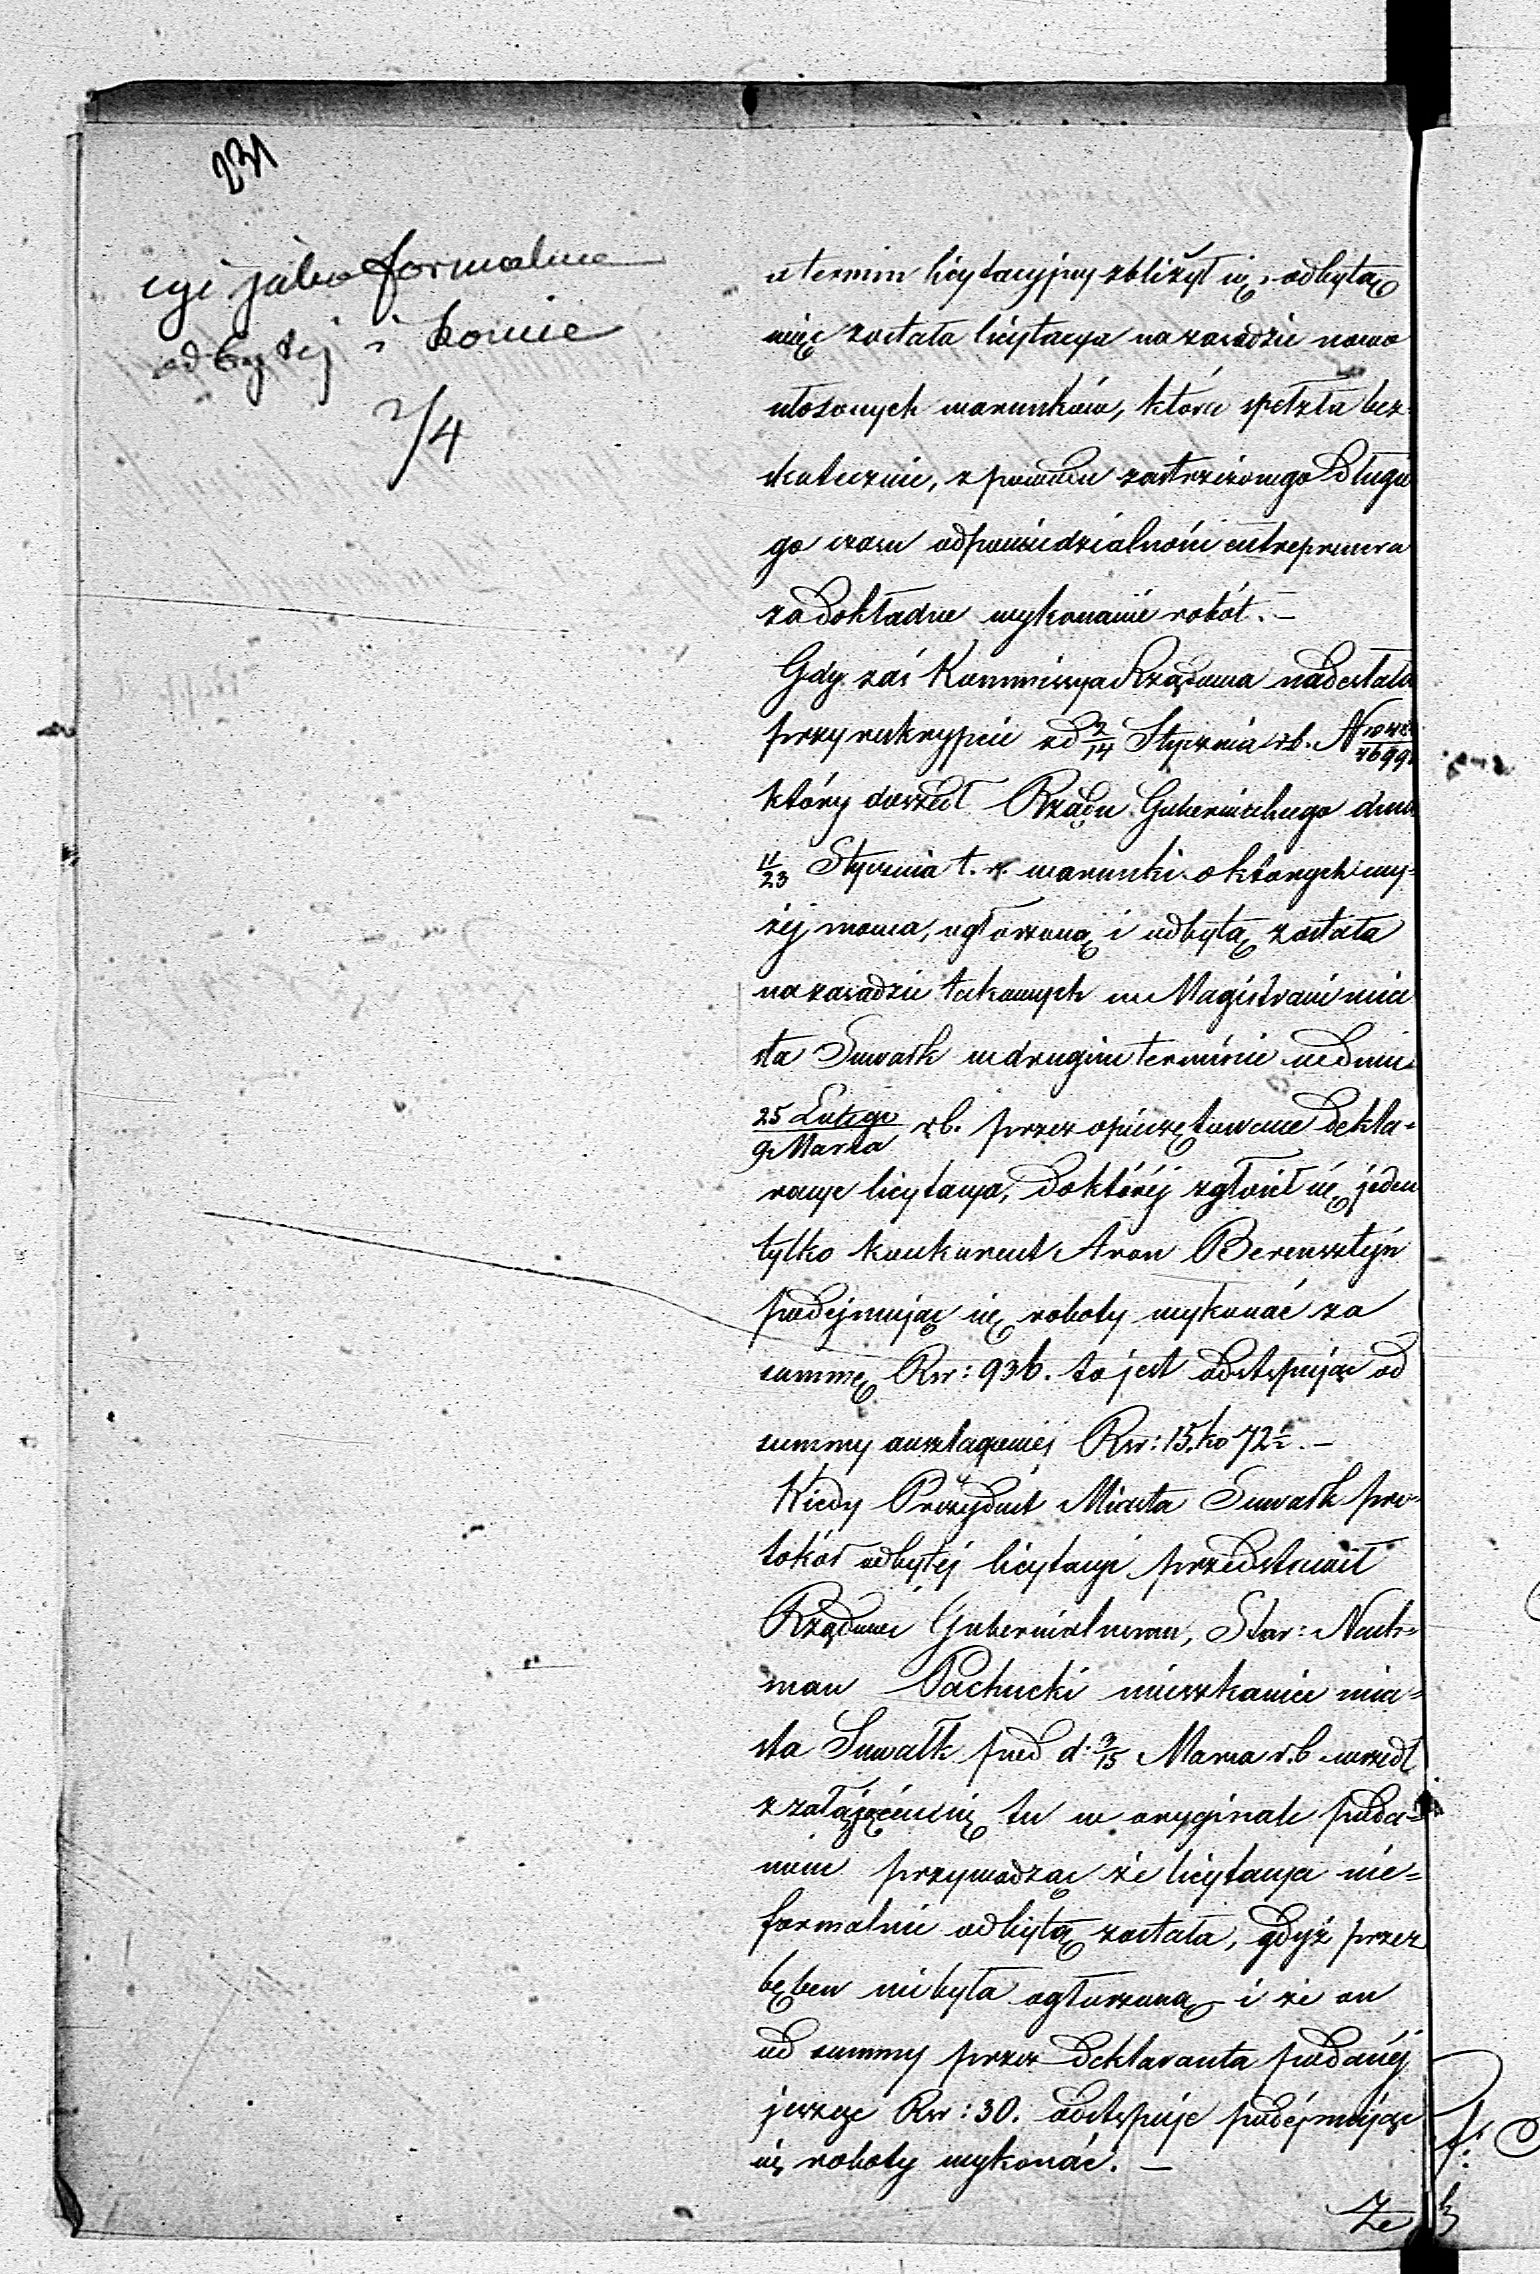 231
cyi jako formalnie
odbytej i konie
2/4
a termin licytacyjny zbliżył się, odbytą
więc została licytacya na zasadzie nowo
ułożonych warunków, która spełzła bez-
skutecznie, z powodu zastrzeżonego długie
go czasu odpowiedzialności entreprenera
za dokładne wykonanie robót. —
Gdy zaś Kommissya Rządowa nadesłała
przy reskrypcie od 2/14 Stycznia rb. N
który doszedł Rządu Gubernialnego dnia
11/23 Stycznia t. r. warunki o których wy-
żej mowa, ogłoszoną i odbytą została
na zasadzie takowych w Magistracie mia
sta Suwałk w drugim terminie w dniu
25 Lutego/9 Marca rb. przez opieczętowane dekla-
racye licytacya, do której zgłosił się jeden
tylko konkurent Aron Berensztejn
podejmując się roboty wykonać za
summę Rsr: 936. to jest odstępując od
summy anszlagowej Rsr: 15. ko 72½. —
Kiedy Prezydent Miasta Suwałk pro-
tokół odbytej licytacyi przedstawił
Rządowi Gubernialnemu, Star: Nach-
man Pachucki mieszkaniec mia-
sta Suwałk pod d. 3/15 Marca r. b. wszedł
z załączającem się tu w oryginale poda-
niem przywodząc że licytacya nie-
formalnie odbytą została, gdyż przez
bęben nie była ogłoszoną i że on
od summy przez deklaranta podanéj
jeszcze Rsr: 30. odstępuje podejmując
się roboty wykonać. —
Ze